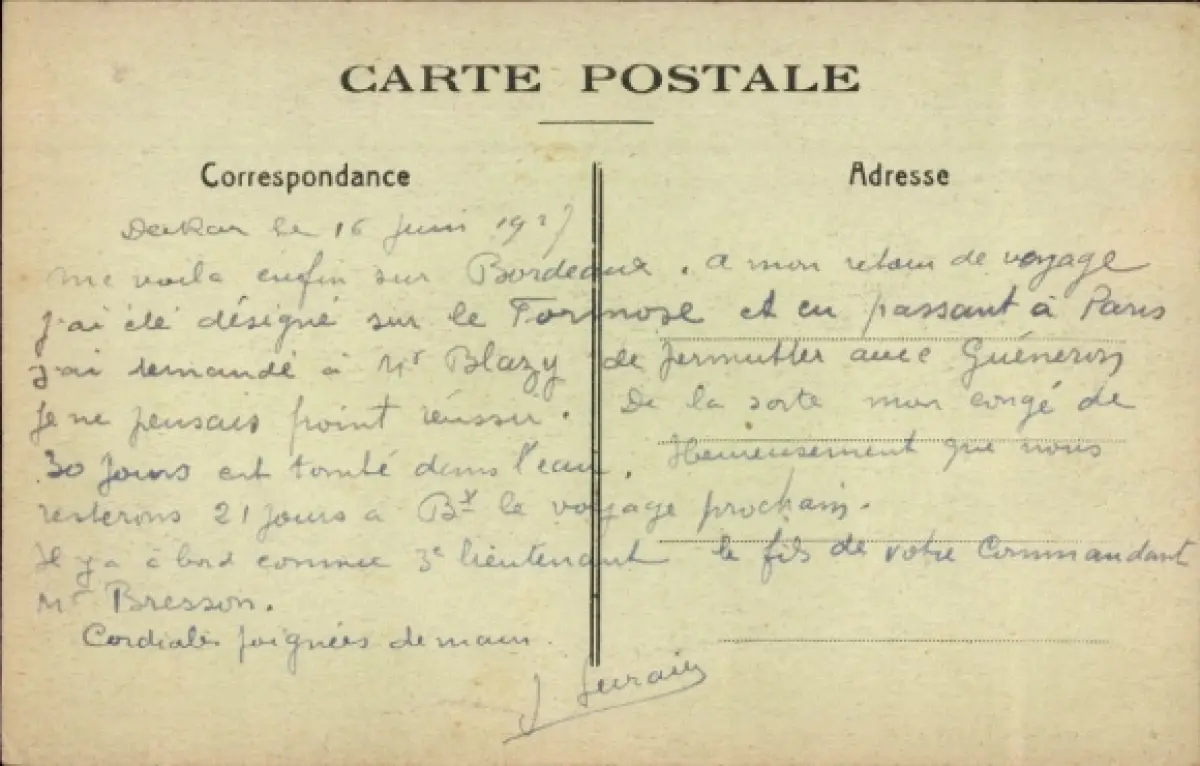 CARTE POSTALE
Correspondance
Adresse
Dakar le 16 juin 1927
me voila enfin sur Bordeaux. a mon retour de voyage
j'ai été désigné sur le Formose et en passant à Paris
j'ai demandé à Mr Blazy de permutter avec Guéneron
je ne pensais point réussir. De la sorte mon congé de
30 jours est tombé dans l'eau. Heureusement que nous
resterons 21 jours a Bx le voyage prochain.
Il y a à bord comme 3e lieutenant le fils de votre Commandant
Mr Bresson.
Cordiales poignées de main.
J